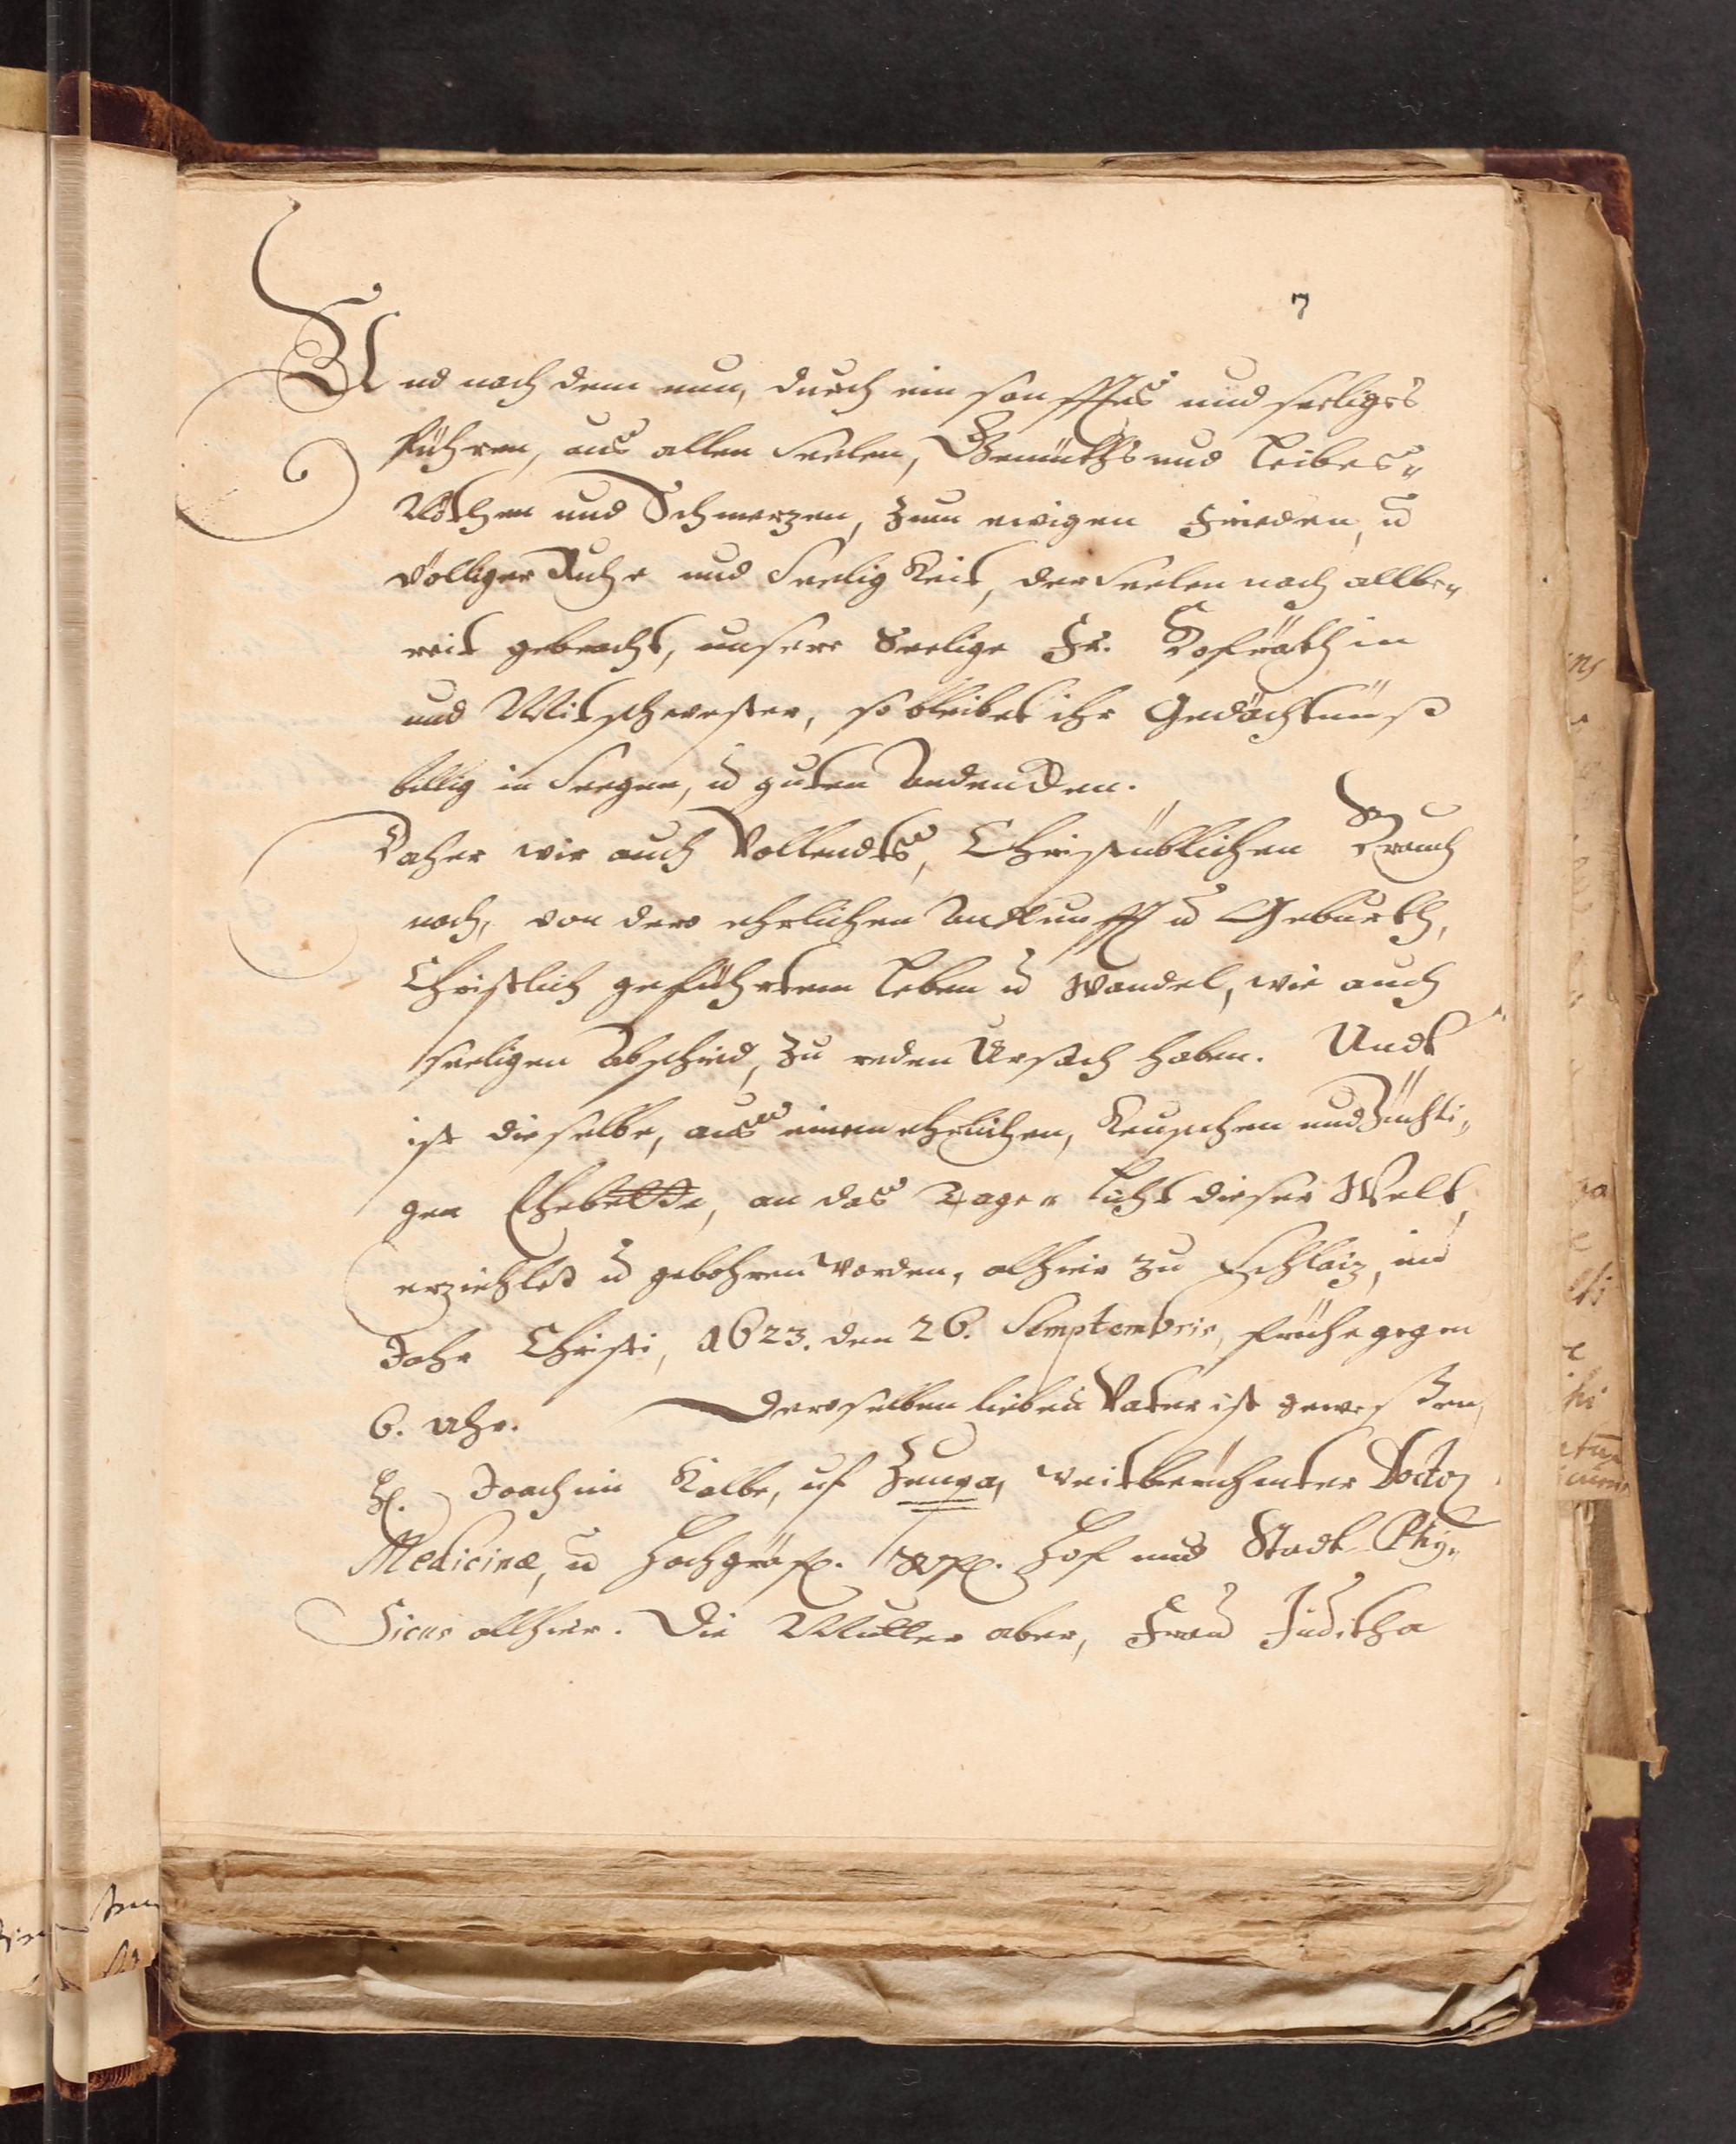 7
Und nach dem nun, durch ein sanfftes und seeliges
führen, aus allen Seelen, Gemüths und Leibes„
Nöthen und Schmerzen, zum ewigen Frieden, u
völliger Ruhe und Seeligkeit, der Seelen nach allbe„
reit gebracht, unsere Seelige Fr. Hofräthin
und Mitschwester, so bleibet ihr Gedächtnüß
billig in Seegen, u guten Andencken.
Daher wir auch Vollendts, Christüblichen Brauch
nach, von dero ehrlichen Ankunfft u Geburth,
Christlich geführtem Leben u Wandel, wie auch
seeligen Abschied, zu reden Ursach haben. Undt
ist dieselbe, aus einem ehrlichen, Keuschen und Züchti„
gen Ehebette, an das Tage„ Licht dieser Welt,
erziehlet u gebohren worden, alhier zu Schlaiz, im
Jahr Christi, 1623. den 26. Semptembris, frühe gegen
6. Uhr. Deroselben lieber Vater ist gewesßen,
H. Joachim Kalbe, uf Zeuga, weitberühmter Doctor
Medicinæ, u Hochgräfl. Hof und Stadt Phy„
Sicus allhier. Die Mutter aber, Frau Juditha